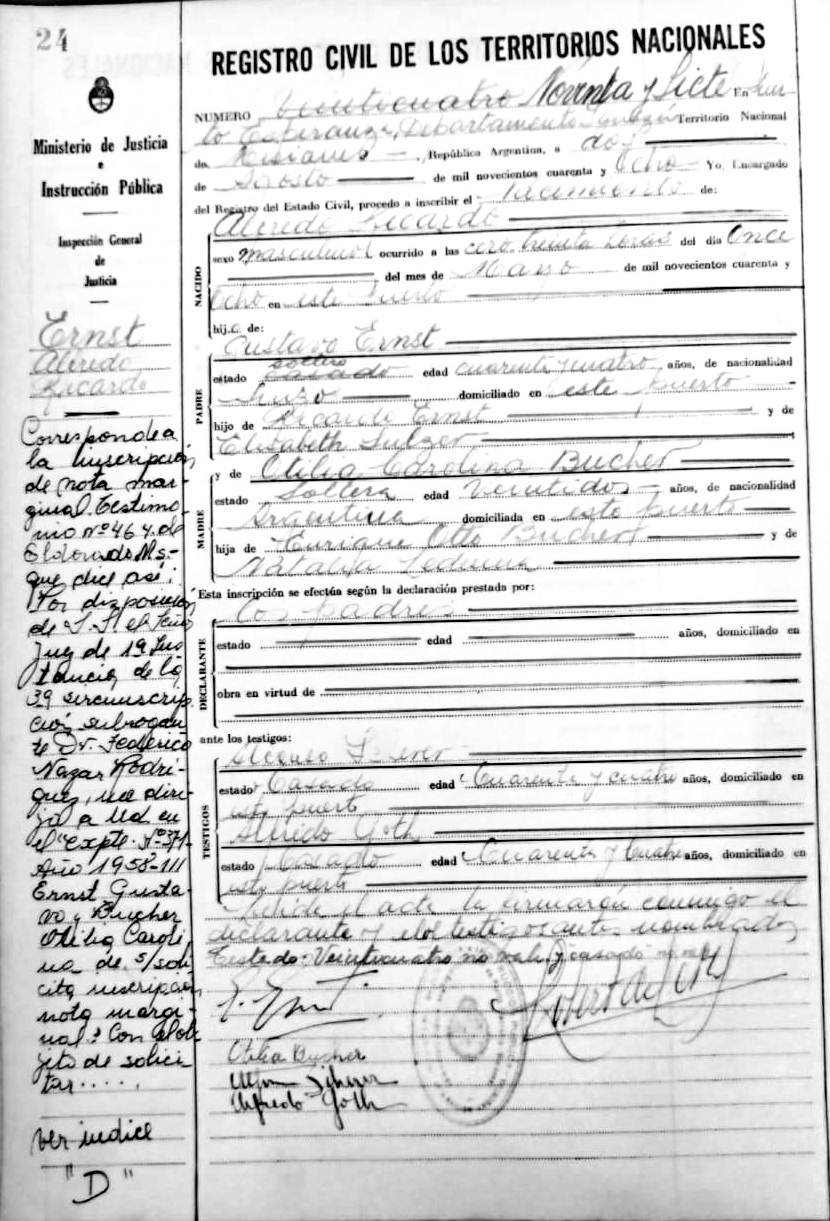 24
REGISTRO CIVIL DE LOS TERRITORIOS NACIONALES
Ministerio de Justicia
e
Instrucción Pública
Inspección General
de
Justicia
Ernst
Alfredo
Ricardo
Corresponde a
la inscripción
de nota mar-
ginal. Testimo-
nio nº 464. de
Eldorado Ms-
que dice así:
Por disposición
de S. S. el Señor
Juez de 1ª Ins
tancia de la
3ª circunscrip
ción subrogan
te Dr. Federico
Nazar Rodrí-
guez, me diri-
jo a Ud en
el Expte. Nº 371-
Año 1958-III
Ernst Gusta-
vo y Bucher
Otilia Caroli
na de s/soli
cita inscripción
nota margi-
nal." Con el ob
jeto de solici-
tar.....
ver indice
"D"
NUMERO Veinticuatro Noventa y Siete En Puer
to Esperanza, Departamento Iguazú Territorio Nacional
de Misiones, República Argentina, a dos
de Agosto de mil novecientos cuarenta y Ocho Yo, Encargado
del Registro del Estado Civil, procedo a inscribir el nacimiento de:
NACIDO
Alfredo Ricardo
sexo masculino ocurrido a las cero treinta horas del día Once
del mes de Marzo de mil novecientos cuarenta y
Ocho en este Puerto
hijo de:
PADRE
Gustavo Ernst
soltero
estado casado edad cuarenta y cuatro años, de nacionalidad
Suizo domiciliado en este puerto
hijo de Ricardo Ernst y de
Elisabeth Sulzer
MADRE
y de Otilia Carolina Bucher
estado Soltera edad Veintidos años, de nacionalidad
Argentina domiciliada en este puerto
hija de Enrique Otto Bucher y de
Natalia
Esta inscripción se efectúa según la declaración prestada por:
DECLARANTE
los padres
estado edad años, domiciliado en
obra en virtud de
ante los testigos:
TESTIGOS
Alfonso
estado Casado edad Cuarenta y cuatro años, domiciliado en
este puerto
Alfredo Goth
estado Casado edad Cuarenta y Cuatro años, domiciliado en
este puerto
el acta la firmaron conmigo el
declarante y los testigos antes nombrados
Testado: Veinticuatro no vale y casado no vale
Otilia Bucher
Alfredo Goth